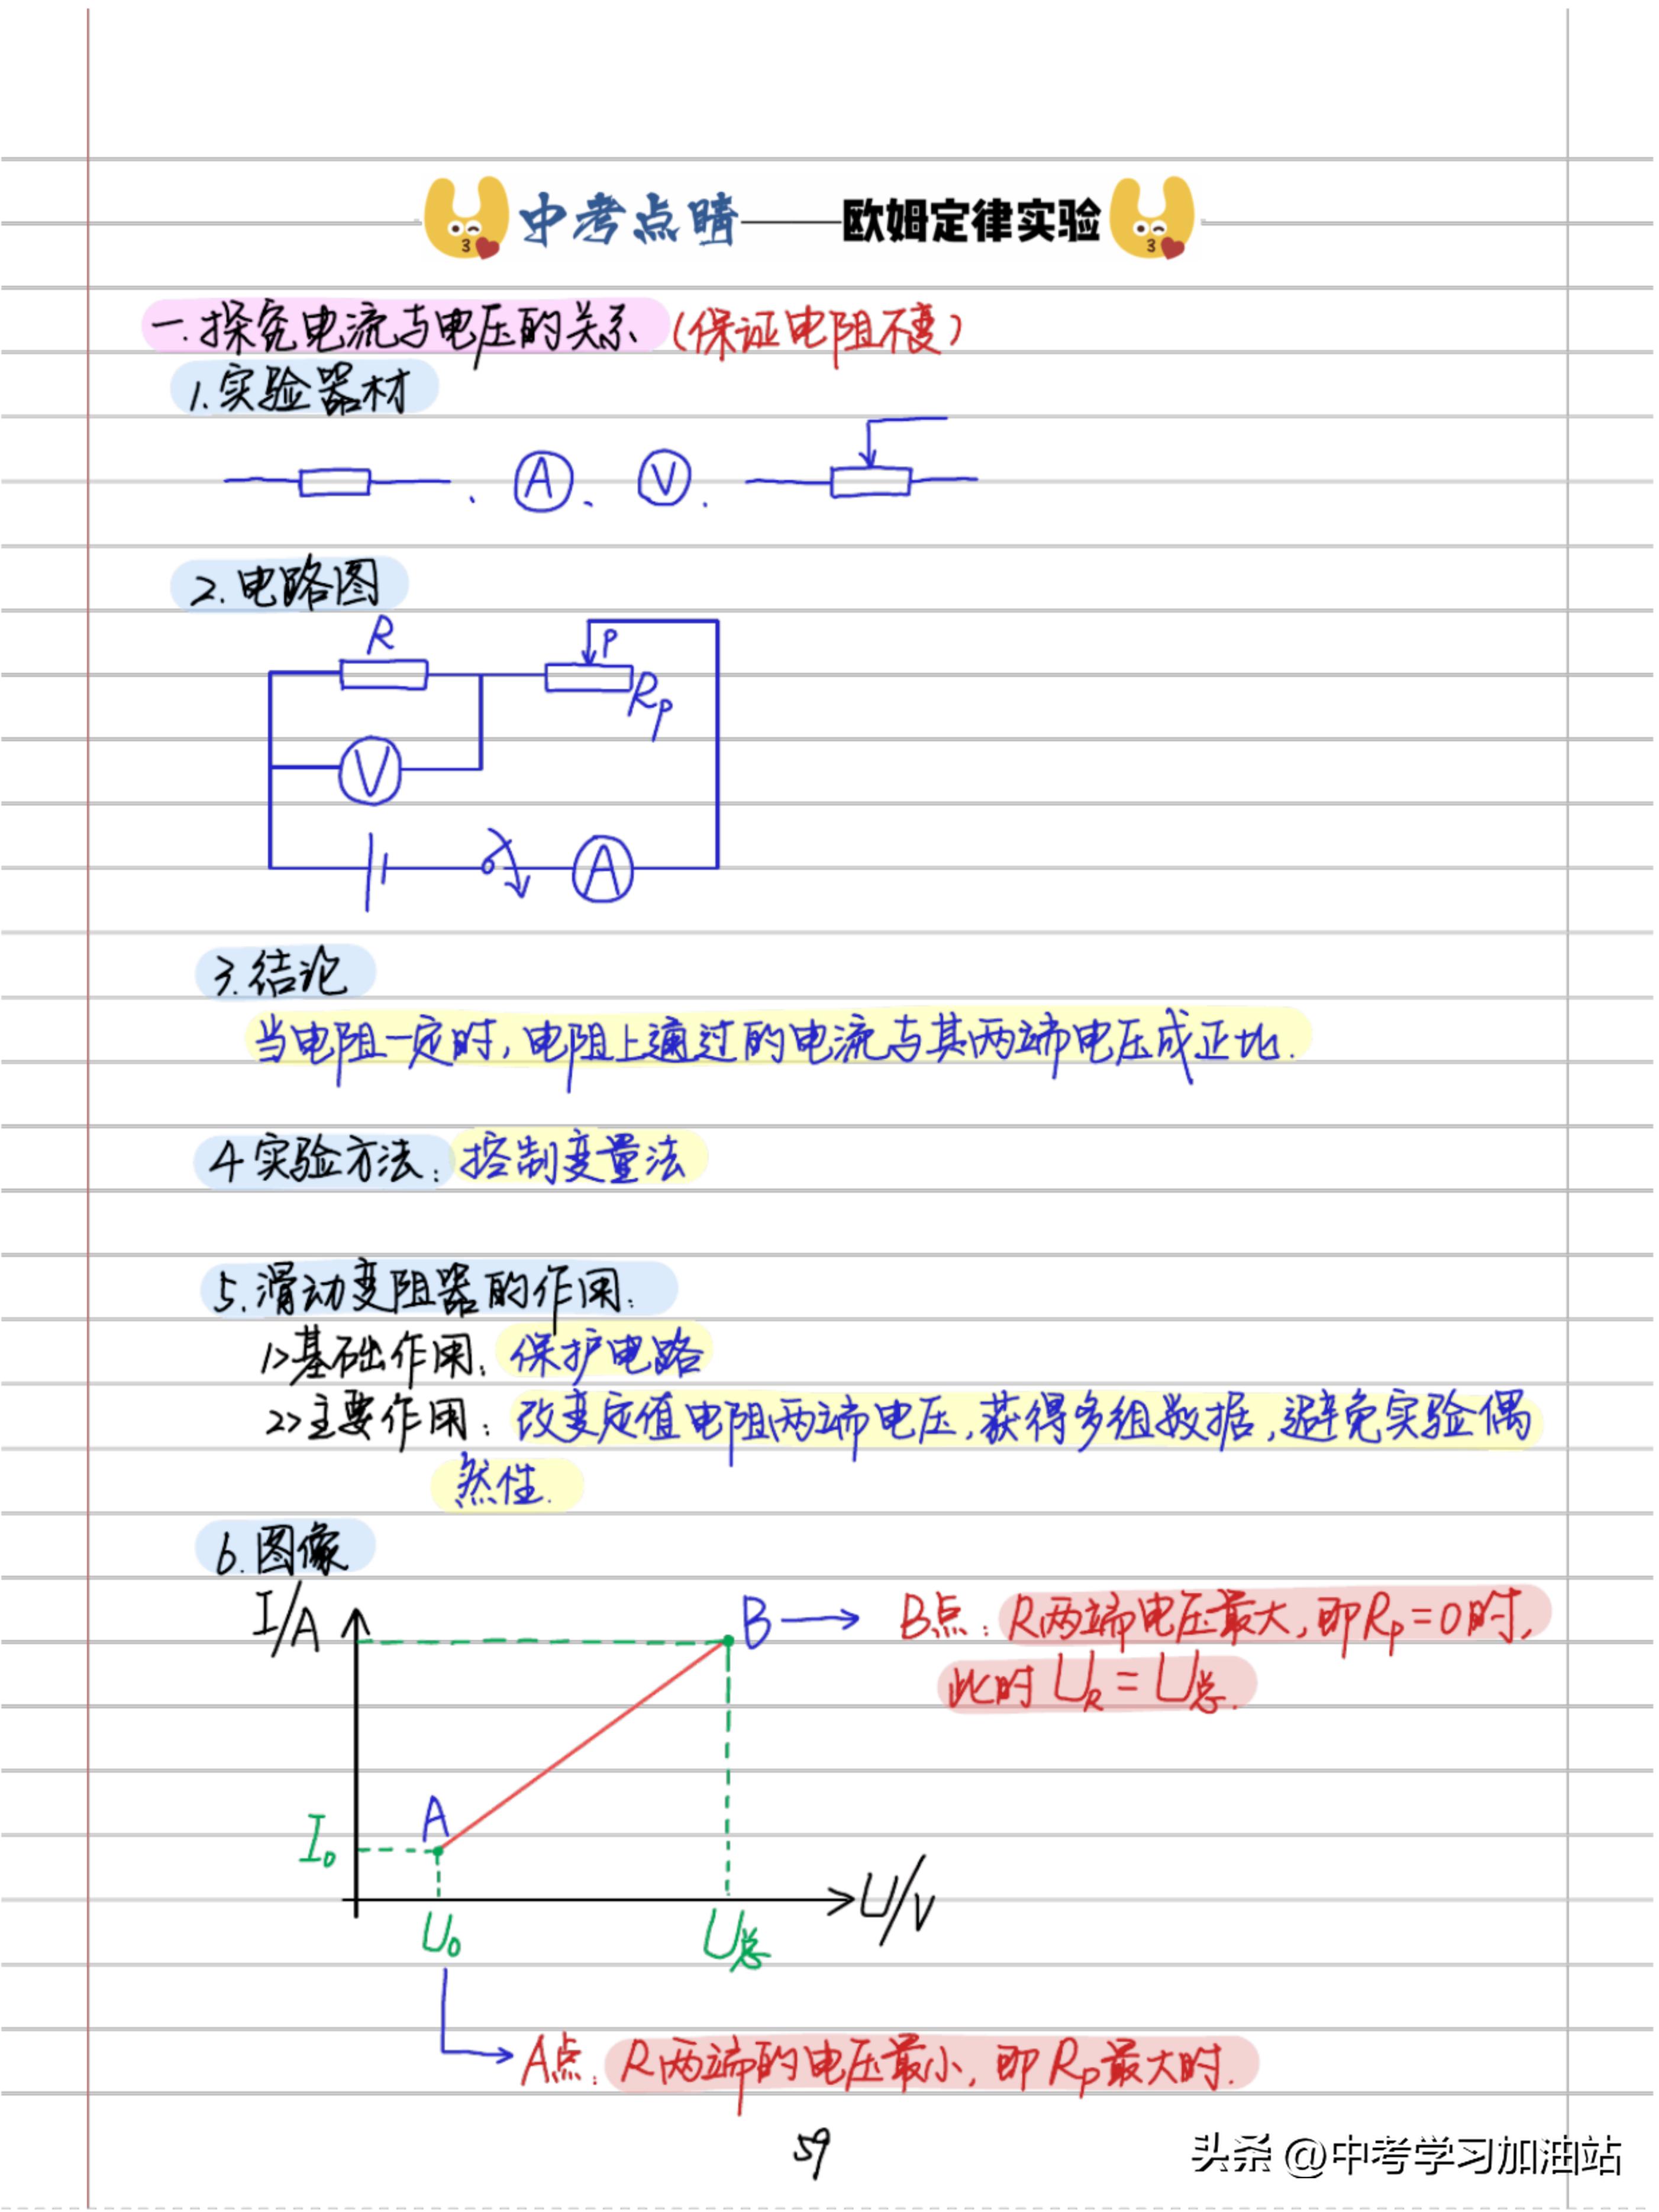 中考点睛——欧姆定律实验
一.探究电流与电压的关系(保证电阻不变)
1.实验器材
、A、V、
2.电路图
R P
Rp
V
A
3.结论
当电阻一定时,电阻上通过的电流与其两端电压成正比.
4实验方法:控制变量法
5.滑动变阻器的作用:
1>基础作用:保护电路
2>主要作用:改变定值电阻两端电压,获得多组数据,避免实验偶
然性.
6.图像
I/A B B点:R两端电压最大,即Rp=0时,
此时UR=U总.
A
I0
U/V
U0 U总
A点:R两端的电压最小,即Rp最大时.
59
头条@中考学习加油站